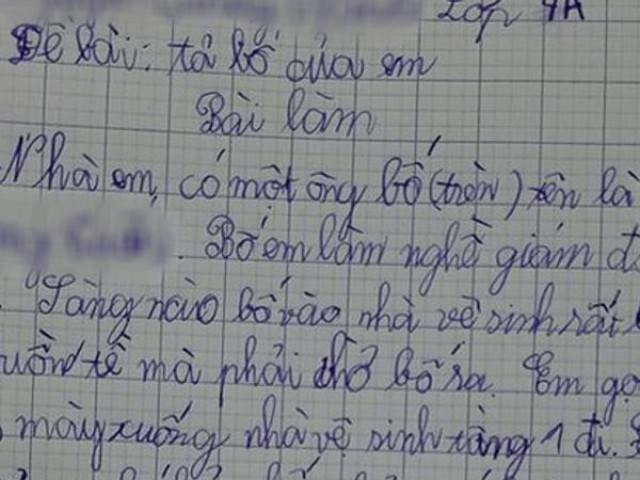 Lớp 4A
Đề bài: tả bố của em
Bài làm
Nhà em, có một ông bố (trèn) tên là
. Bố em làm nghề giám đ
"Sàng nào bố vào nhà vê sinh rất
uồn tè mà phải chờ bố ra. Em gọ
mày xuống nhà vê sinh tàng 1 đi.